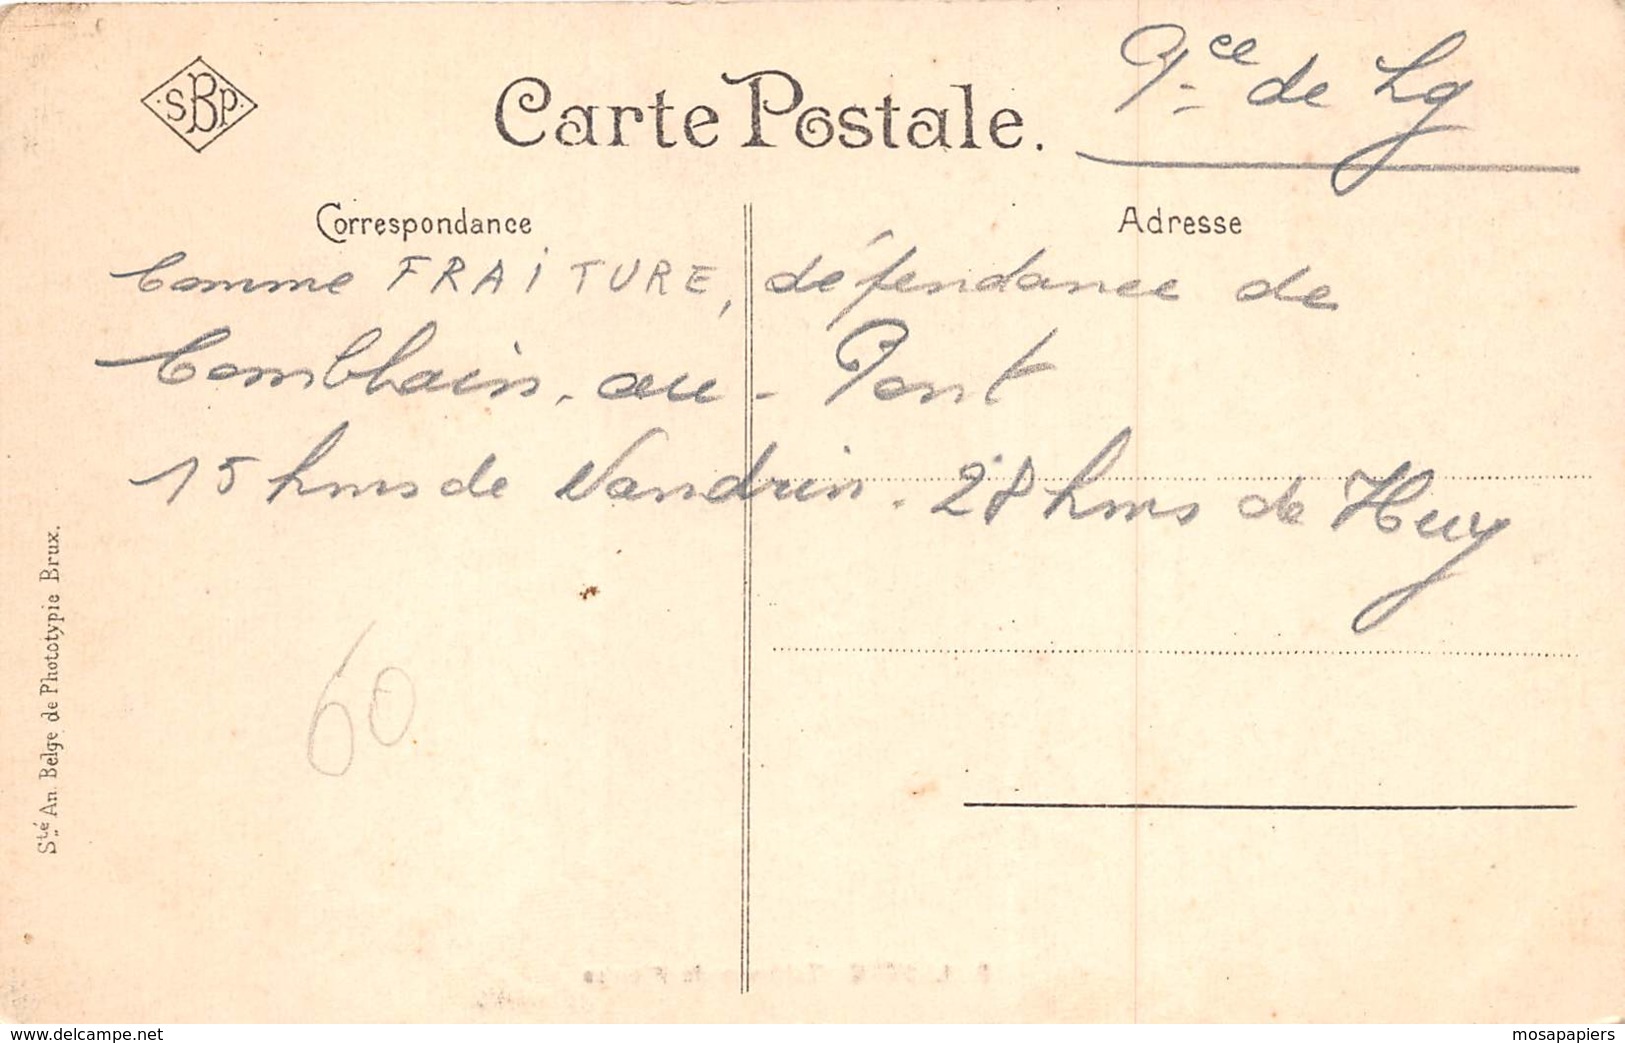 SBP
Carte Postale.
Pce de Lg
Correspondance
Adresse
Comme FRAiTURE, défendance de
Comblain-au-Pont
15 kms de Nandrin. 28 kms de Huy
60
Sté An. Belge de Phototypie Brux.
delcampe.net
mosapapiers